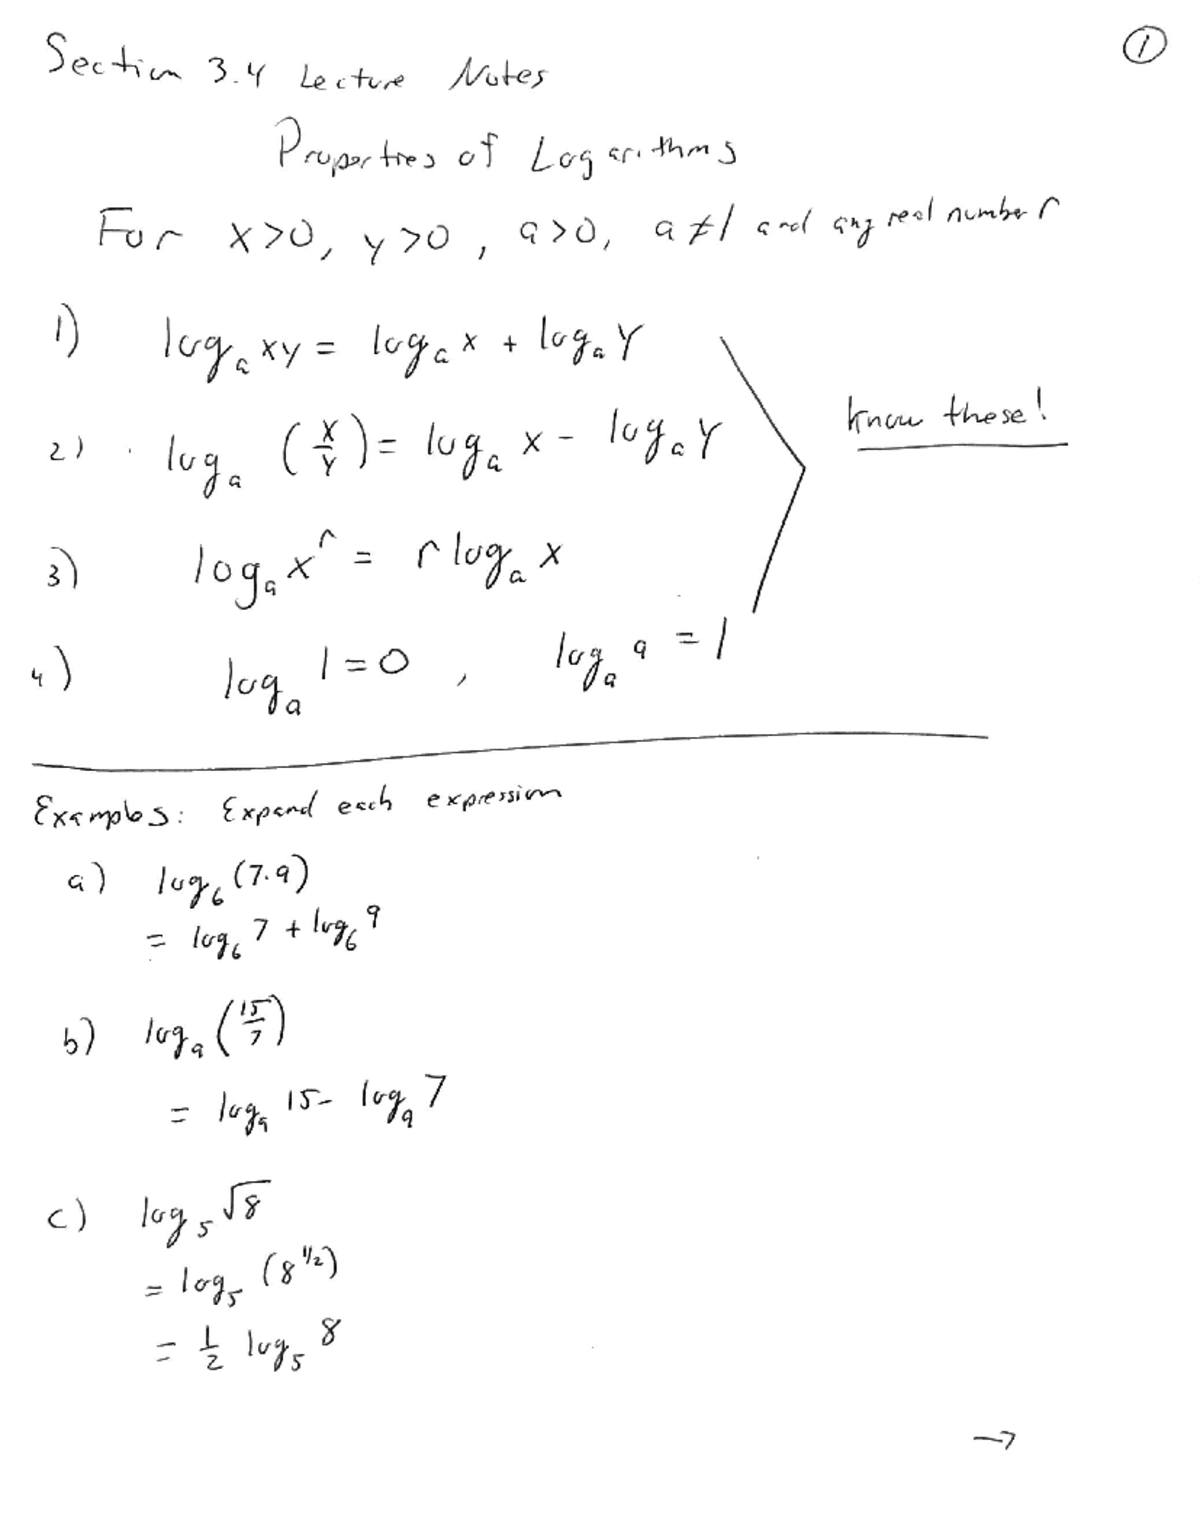 ①
Section 3.4 Lecture Notes
Properties of Logarithms
For x>0, y>0, a>0, a≠1 and any real number r
1) logₐ xy = logₐ x + logₐ y
2) logₐ (x/y) = logₐ x - logₐ y
know these!
3) logₐ xʳ = r logₐ x
4) logₐ 1 = 0, logₐ a = 1
Examples: Expand each expression
a) log₆ (7·9)
= log₆ 7 + log₆ 9
b) log₉ (15/7)
= log₉ 15 - log₉ 7
c) log₅ √8
= log₅ (8^1/2)
= 1/2 log₅ 8
→